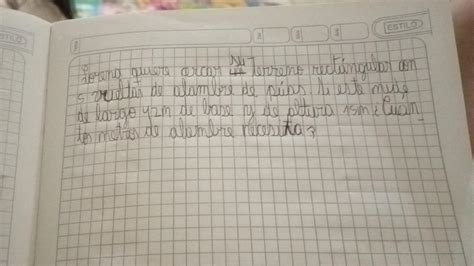 ESTILO
Lorena quiere cercar su terreno rectángular con
5 vueltas de alambre de púas si este mide
de largo 42m de base y de altura 15m ¿Cuan_
tos metros de alambre necesita?